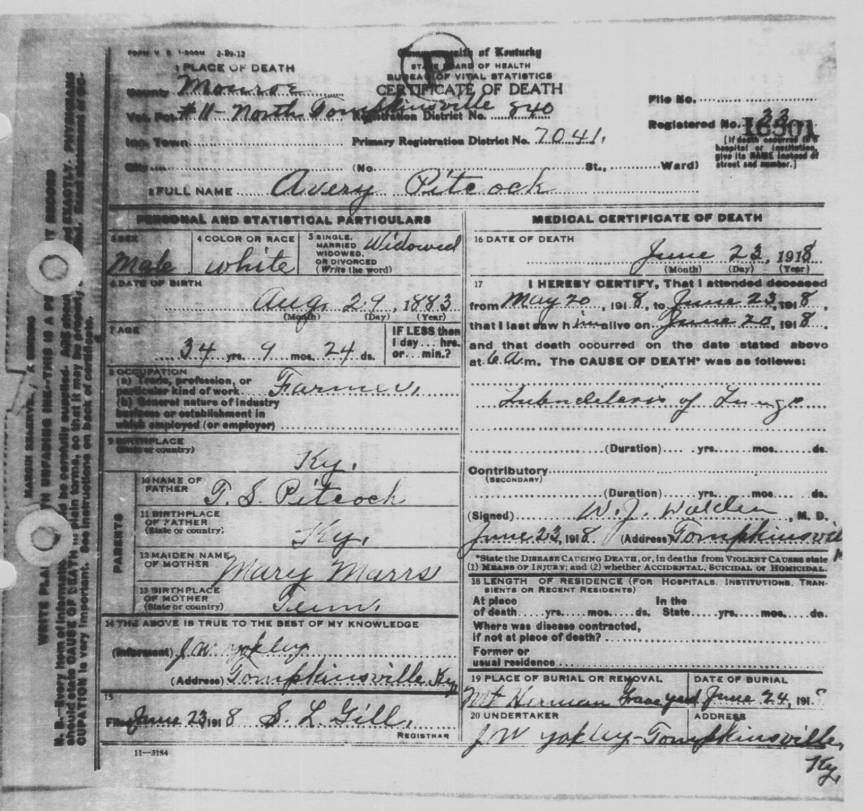 FORM V. S. 1-200M 2-29-12
Commonwealth of Kentucky
STATE BOARD OF HEALTH
BUREAU OF VITAL STATISTICS
CERTIFICATE OF DEATH
1 PLACE OF DEATH
County Monroe
Vot. Pct. #11- North Tompkinsville Registration District No. 840
File No.
Registered No. 33
16501
Inc. Town Primary Registration District No. 7041.
[If death occurred in a
hospital or institution,
give its NAME instead of
street and number.]
City (No. St., Ward)
2 FULL NAME Avery Pitcock
PERSONAL AND STATISTICAL PARTICULARS
3 SEX
Male
4 COLOR OR RACE
white
5 SINGLE,
MARRIED
WIDOWED,
OR DIVORCED
(Write the word)
Widowed
6 DATE OF BIRTH
Aug. 29, 1883
(Month) (Day) (Year)
7 AGE
34 yrs. 9 mos. 24 ds.
IF LESS than
1 day... hrs.
or... min.?
8 OCCUPATION
(a) Trade, profession, or
particular kind of work Farmer.
(b) General nature of industry
business or establishment in
which employed (or employer)
9 BIRTHPLACE
(State or country)
Ky.
PARENTS
10 NAME OF
FATHER T. S. Pitcock
11 BIRTHPLACE
OF FATHER
(State or country)
Ky.
12 MAIDEN NAME
OF MOTHER Mary Marrs
13 BIRTHPLACE
OF MOTHER
(State or country) Tenn.
14 THE ABOVE IS TRUE TO THE BEST OF MY KNOWLEDGE
(Informant) J.W. Yokley
(Address) Tompkinsville Ky
15
Filed June 23 1918 S. L. Gill.
REGISTRAR
11-3184
MEDICAL CERTIFICATE OF DEATH
16 DATE OF DEATH
June 23, 1918
(Month) (Day) (Year)
17 I HEREBY CERTIFY, That I attended deceased
from May 20, 1918, to June 23, 1918,
that I last saw him alive on June 20, 1918.
and that death occurred on the date stated above
at 6 a.m. The CAUSE OF DEATH* was as follows:
of Lungs
(Duration) yrs. mos. ds.
Contributory
(SECONDARY)
(Duration) yrs. mos. ds.
(Signed) W. J. Walden, M. D.
June 23, 1918. (Address) Tompkinsvil
*State the DISEASE CAUSING DEATH, or, in deaths from VIOLENT CAUSES state
(1) MEANS OF INJURY; and (2) whether ACCIDENTAL, SUICIDAL or HOMICIDAL.
18 LENGTH OF RESIDENCE (FOR HOSPITALS, INSTITUTIONS, TRAN-
SIENTS OR RECENT RESIDENTS)
At place In the
of death yrs. mos. ds. State yrs. mos. ds.
Where was disease contracted,
if not at place of death?
Former or
usual residence
19 PLACE OF BURIAL OR REMOVAL
Mt Herman Grave yard
DATE OF BURIAL
June 24, 191
20 UNDERTAKER
J W Yokley-
ADDRESS
Tompkinsville,
Ky,